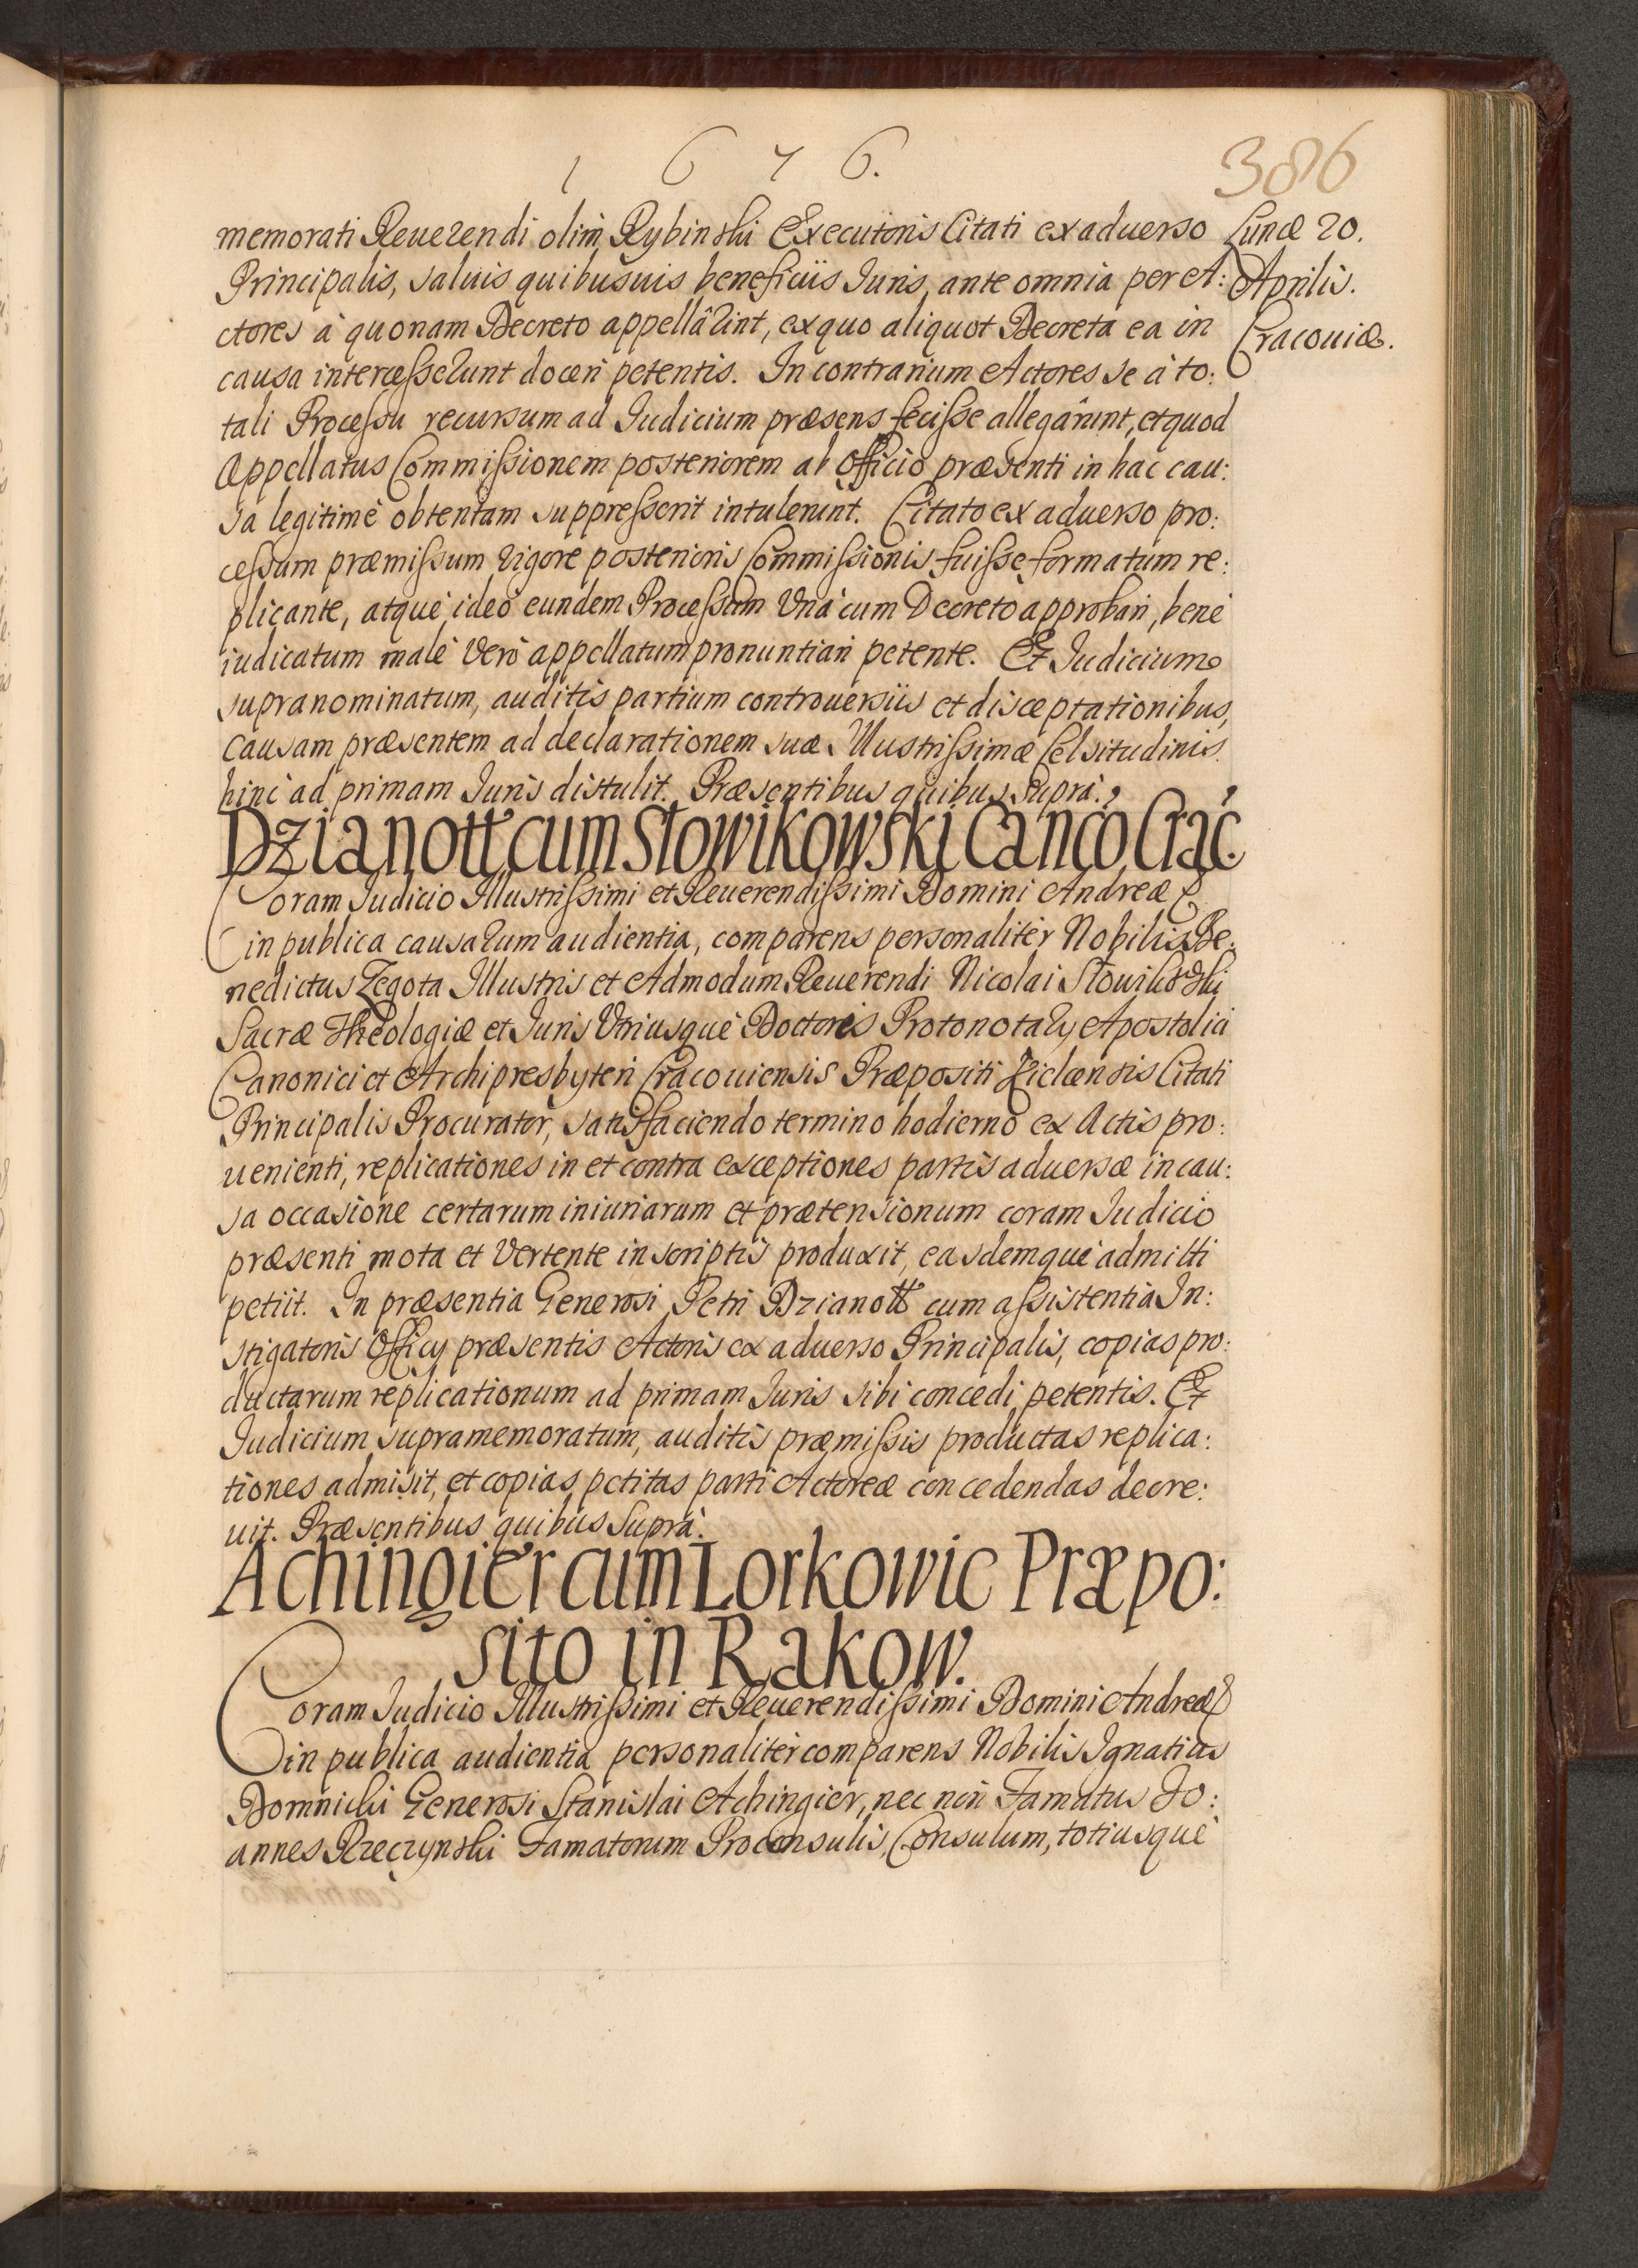 1676.
386
memorati Reuerendi olim Rybinski Executoris Citati ex aduerso
Lunæ 20.
Principalis, saluis quibusuis beneficiis Iuris, ante omnia per A:
Aprilis.
ctores à quonam Decreto appellârint, ex quo aliquot Decreta ea in
Cracouiæ.
causa intercesserunt doceri petentis. In contrarium Actores se à to:
tali Processu recursum ad Iudicium præsens fecisse allegârunt, et quod
Appellatus Commissionem posteriorem ab Officio præsenti in hac cau:
sa legitimè obtentam suppresserit intulerunt. Citato ex aduerso pro:
cessum præmissum vigore posterioris Commissionis fuisse formatum re:
plicante, atquè ideò eundem Processum Vnà cum Decreto approbari, benè
iudicatum malè Verò appellatum pronuntiari petente. Et Iudicium
supranominatum, auditis partium controuersiis et disceptationibus,
causam præsentem ad declarationem suæ Illustrissimæ Celsitudinis
hinc ad primam Iuris distulit. Præsentibus quibus supra.
Dzianott cum Słowikowski Canco Crac.
Coram Iudicio Illustrissimi et Reuerendissimi Domini Andreæ &
in publica causarum audientia, comparens personalitèr Nobilis Be:
nedictus Zegota Illustris et Admodum Reuerendi Nicolai Słowikowski
Sacræ Theologiæ et Iuris Vtriusquè Doctoris Protonotary Apostolici
Canonici et Archipresbyteri Cracouiensis Præpositi Kielcensis Citati
Principalis Procurator, satisfaciendo termino hodierno ex Actis pro:
uenienti, replicationes in et contra exceptiones partis aduersæ in cau:
sa occasione certarum iniuriarum et prætensionum coram Iudicio
præsenti mota et Vertente in scriptis produxit, easdemquè admitti
petiit. In præsentia Generosi Petri Dzianott cum assistentia In:
stigatoris Officy præsentis Actoris ex aduerso Principalis, copias pro:
ductarum replicationum ad primam Iuris sibi concedi petentis. Et
Iudicium supramemoratum, auditis præmissis productas replica:
tiones admisit, et copias petitas parti Actoreæ concedendas decre:
uit. Præsentibus quibus supra.
Achingier cum Lorkowic Præpo:
sito in Rakow.
Coram Iudicio Illustrissimi et Reuerendissimi Domini Andreæ &
in publica audientia personalitèr comparens Nobilis Ignatius
Domnicki Generosi Stanislai Achingier, nec non Famatus Jo:
annes Rzeczynski Famatorum Proconsulis, Consulum, totiusquè